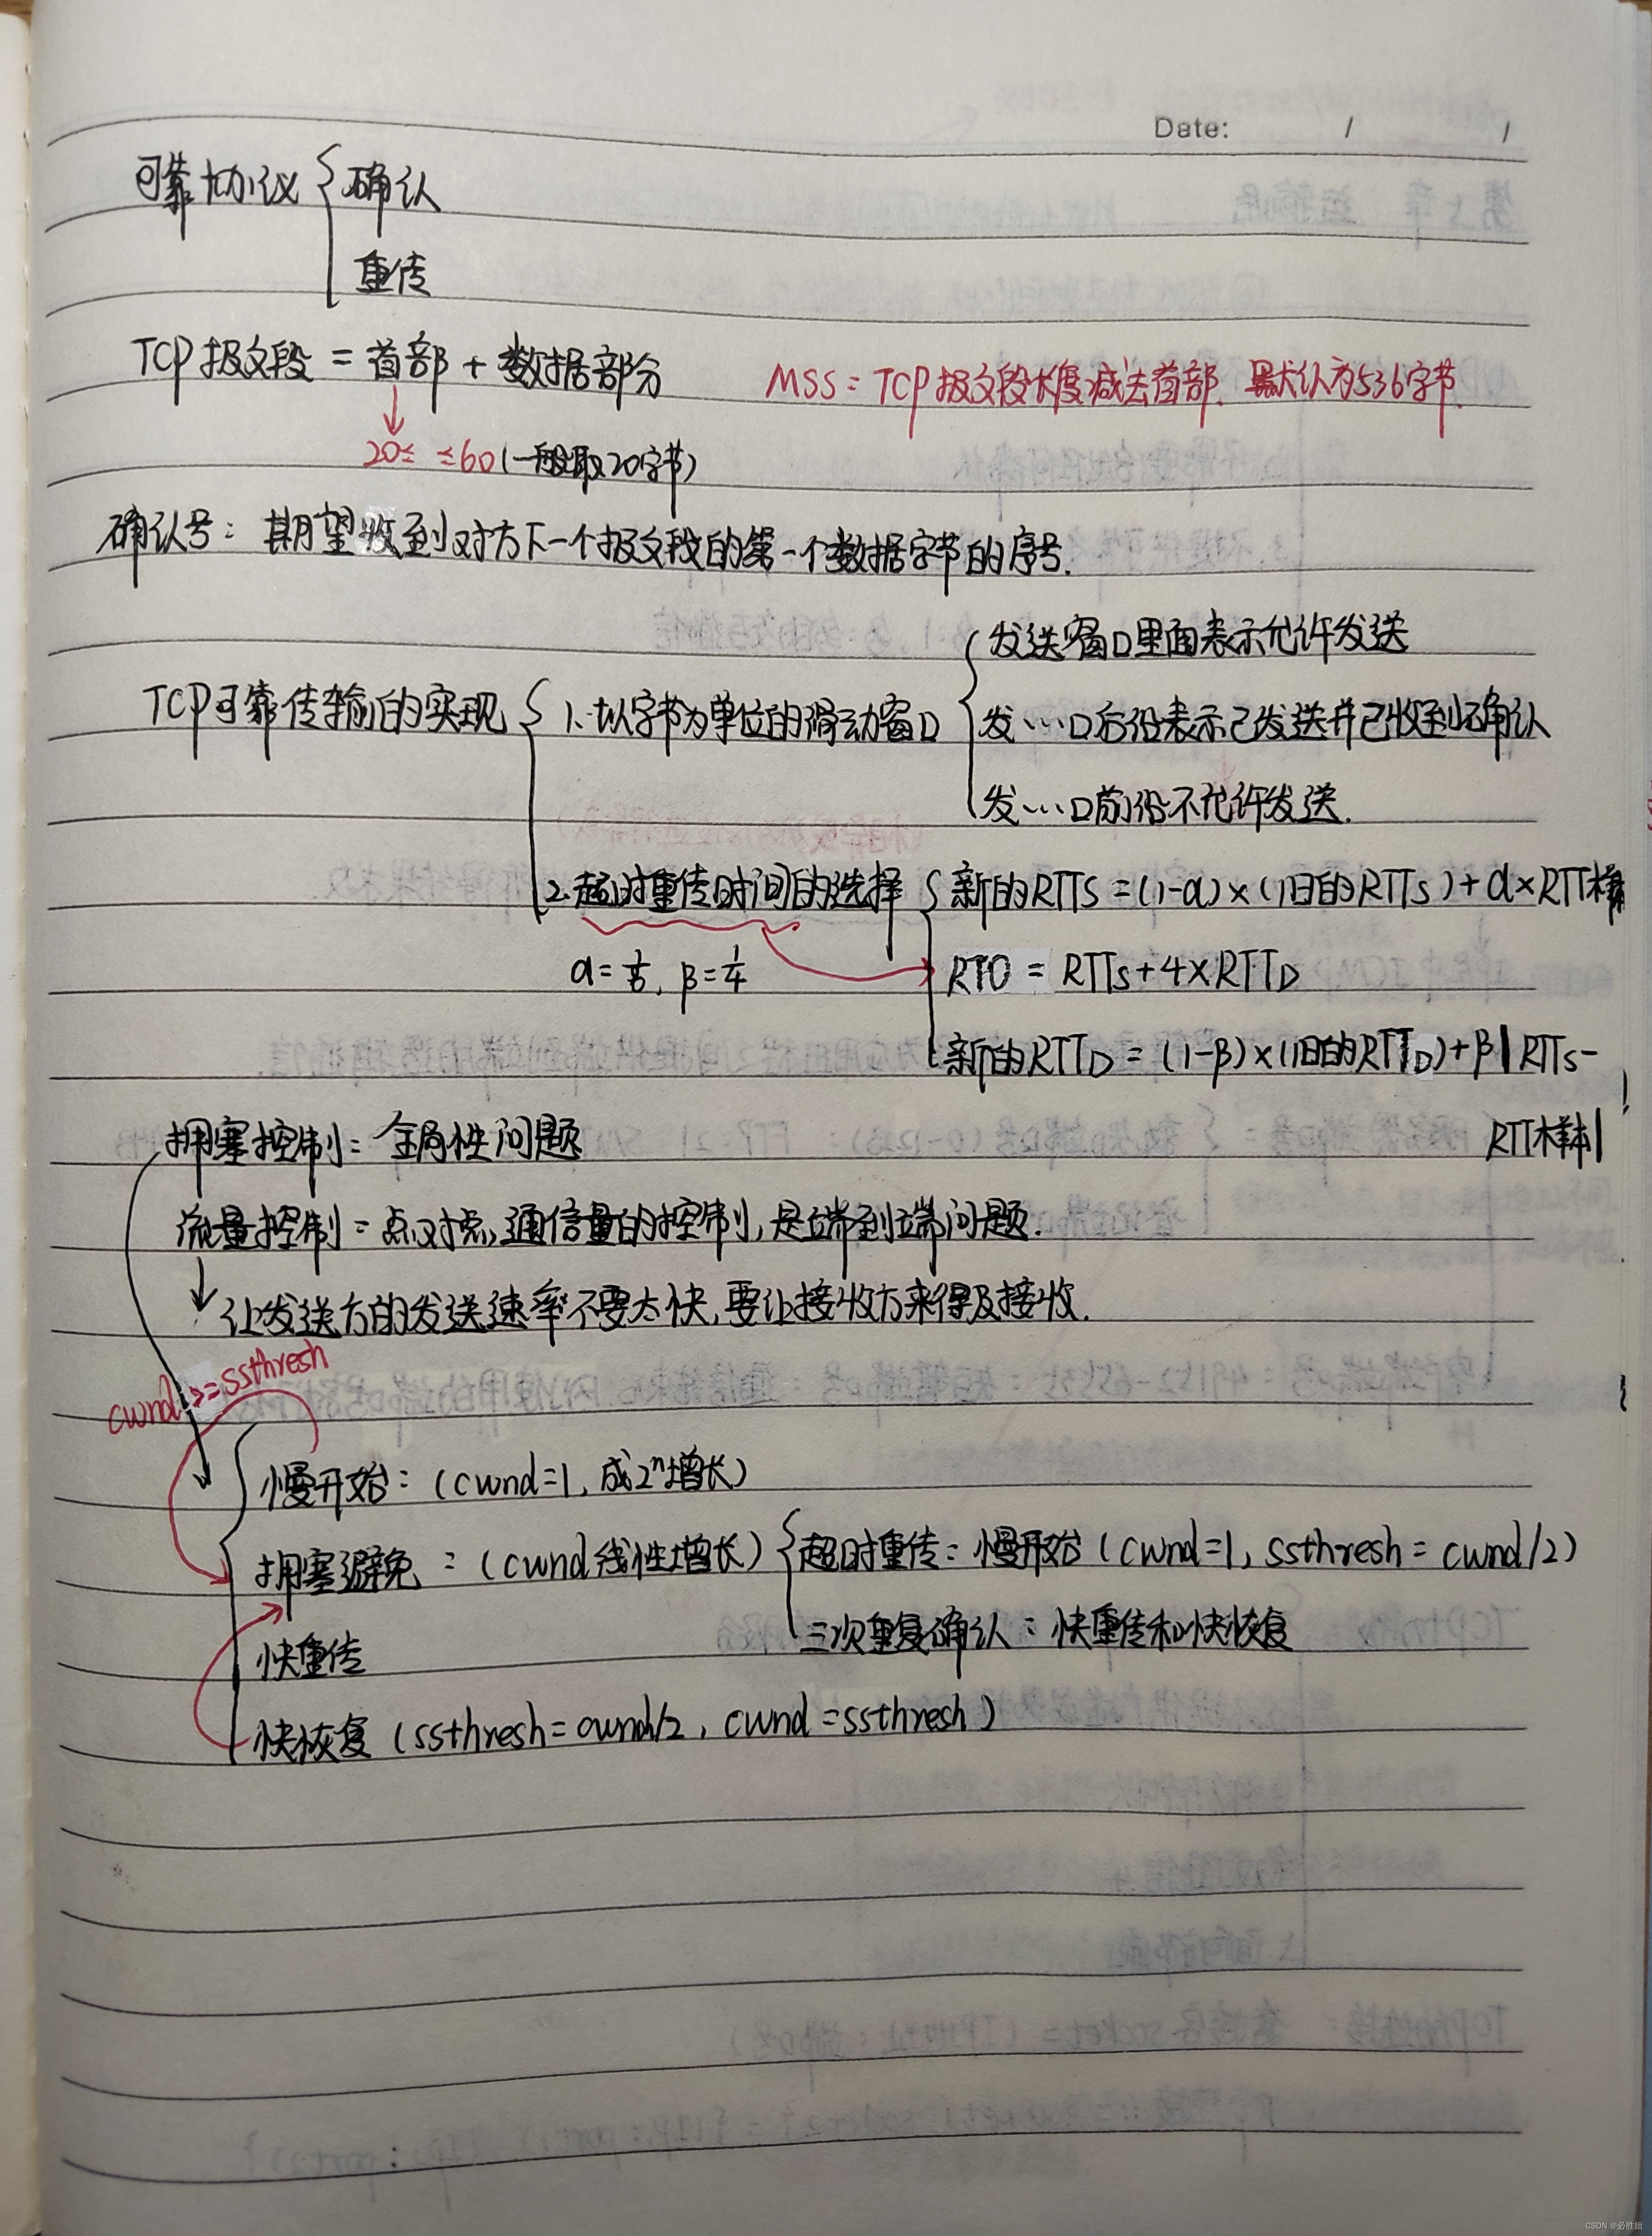 Date: / /
可靠协议 { 确认
重传
TCP报文段 = 首部 + 数据部分 MSS = TCP报文段长度减去首部. 默认为536字节.
20≤ ≤60(一般取20字节)
确认号: 期望收到对方下一个报文段的第一个数据字节的序号.
发送窗口里面表示允许发送
TCP可靠传输的实现 { 1.以字节为单位的滑动窗口 { 发…口后沿表示已发送并已收到确认
发…口前沿不允许发送.
2.超时重传时间的选择 { 新的RTTs = (1-α)×(旧的RTTs)+α×RTT样
α=1/8, β=1/4 RTO = RTTs+4×RTTD
新的RTTD = (1-β)×(旧的RTTD)+β|RTTs-
拥塞控制: 全局性问题 RTT样本|
流量控制: 点对点通信量的控制, 是端到端问题.
↓ 让发送方的发送速率不要太快, 要让接收方来得及接收.
cwnd>=ssthresh
慢开始: (cwnd=1, 成2ⁿ增长)
拥塞避免: (cwnd线性增长) { 超时重传: 慢开始(cwnd=1, ssthresh=cwnd/2)
三次重复确认: 快重传和快恢复
快重传
快恢复(ssthresh=cwnd/2, cwnd=ssthresh)
CSDN @必胜姐